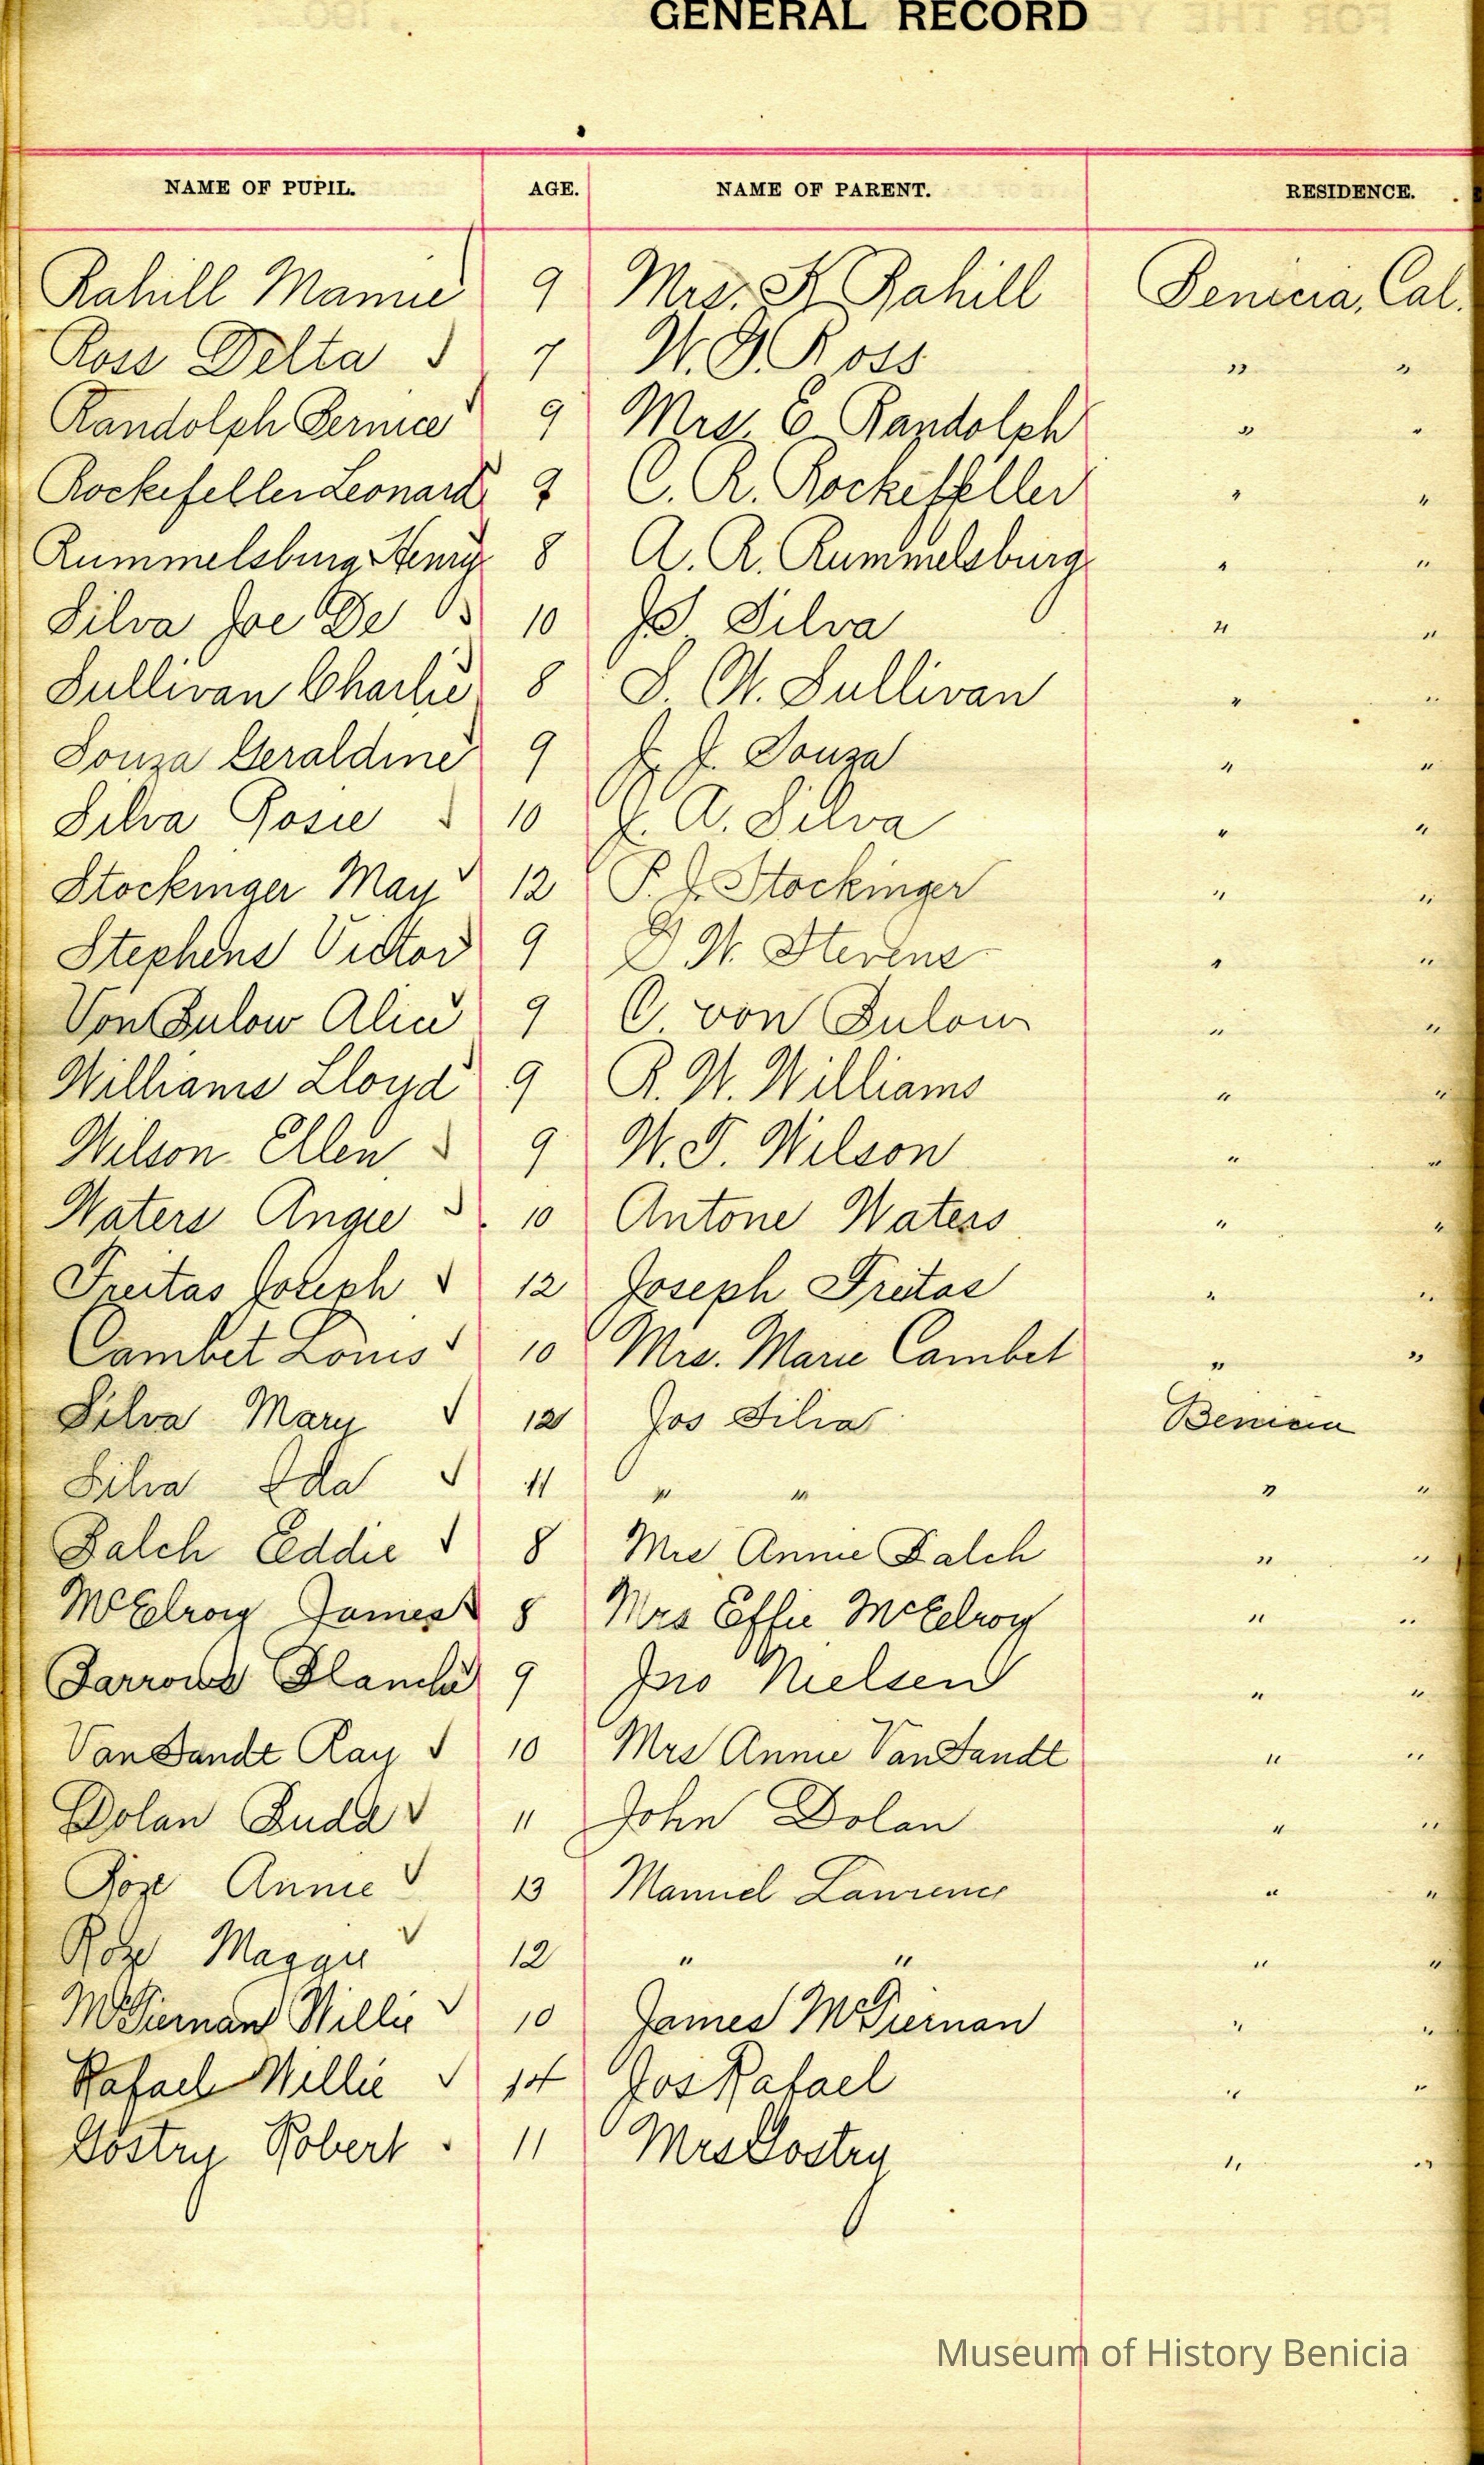 GENERAL RECORD
NAME OF PUPIL. AGE. NAME OF PARENT. RESIDENCE.
Rahill Mamie 9 Mrs. K. Rahill Benicia, Cal.
Ross Delta √ 7 W. G. Ross " "
Randolph Bernice √ 9 Mrs. E. Randolph " "
Rockefeller Leonard √ 9 C. R. Rockefeller " "
Rummelsburg Henry 8 A. R. Rummelsburg " "
Silva Joe De 10 Silva " "
Sullivan Charlie √ 8 S. W. Sullivan " "
Souza Geraldine √ 9 J. J. Souza " "
Silva Rosie √ 10 J. A. Silva " "
Stockinger May √ 12 P. J. Stockinger " "
Stephens Victor √ 9 W. Stevens " "
Von Bulow Alice √ 9 C. von Bulow " "
Williams Lloyd √ 9 R. W. Williams " "
Wilson Ellen √ 9 W. T. Wilson " "
Waters Angie √ 10 Antone Waters " "
Freitas Joseph √ 12 Joseph Freitas " "
Cambet Louis √ 10 Mrs. Marie Cambet " "
Silva Mary √ 12 Jos Silva Benicia
Silva Ida √ 11 " " " "
Balch Eddie √ 8 Mrs Annie Balch " "
McElroy James √ 8 Mrs Effie McElroy " "
Barrows Blanche √ 9 Jno Nielsen " "
Van Sandt Ray √ 10 Mrs Annie Van Sandt " "
Dolan Buda √ 11 John Dolan " "
Roze Annie √ 13 Manuel Lawrence " "
Roze Maggie √ 12 " " " "
McTiernan Willie √ 10 James McTiernan " "
Rafael Willie √ 14 Jos Rafael " "
Robert 11 Mrs " "
Museum of History Benicia